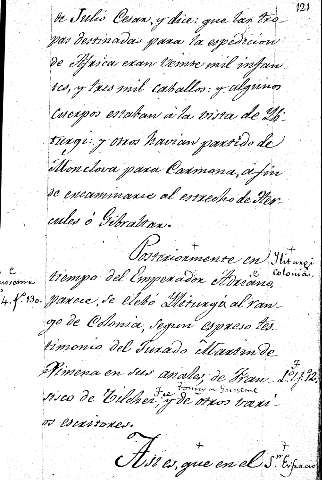 121
de Julio Cesar, y dice: que las tro
pas destinadas para la espedicion
de Africa eran veinte mil infan
tes, y tres mil caballos: y algunos
cuerpos estaban á la vista de Yli
turgi: y otros havian partido de
Monclova para Carmona, á fin
de encaminarse al estrecho de Hér
cules ó Gibraltar.
Posteriormente en
tiempo del Emperador Adriano,
parece, se elebó Yliturgi al ran
go de Colonia, segun espreso tes
timonio del Jurado Martin de
Ximena en sus anales, de Fran
sisco de Bilches y de otros vari
os escritores.
Asi es, que en el
Yliturgi
colonia.
4. fº 130.
Sn Eufracio